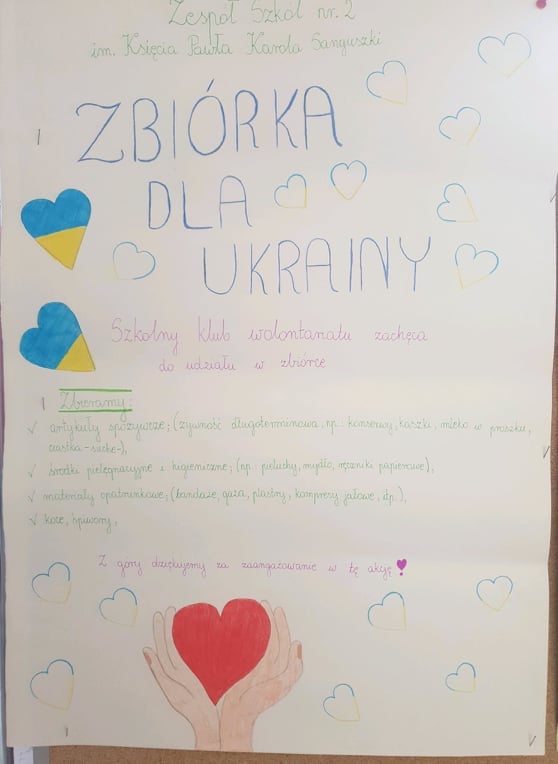 Zespół Szkół nr. 2
im. Księcia Pawła Karola Sanguszki
ZBIÓRKA
DLA
UKRAINY
Szkolny klub wolontariatu zachęca
do udziału w zbiórce
Zbieramy:
✓ artykuły spożywcze; (żywność długoterminowa, np: konserwy, kaszki, mleko w proszku,
ciastka-suche-),
✓ środki pielęgnacyjne i higieniczne; (np: pieluchy, mydło, ręczniki papierowe),
✓ materiały opatrunkowe; (bandaże, gaza, plastry, kompresy jałowe, itp.),
✓ koce, śpiwory,
Z góry dziękujemy za zaangażowanie w tę akcję